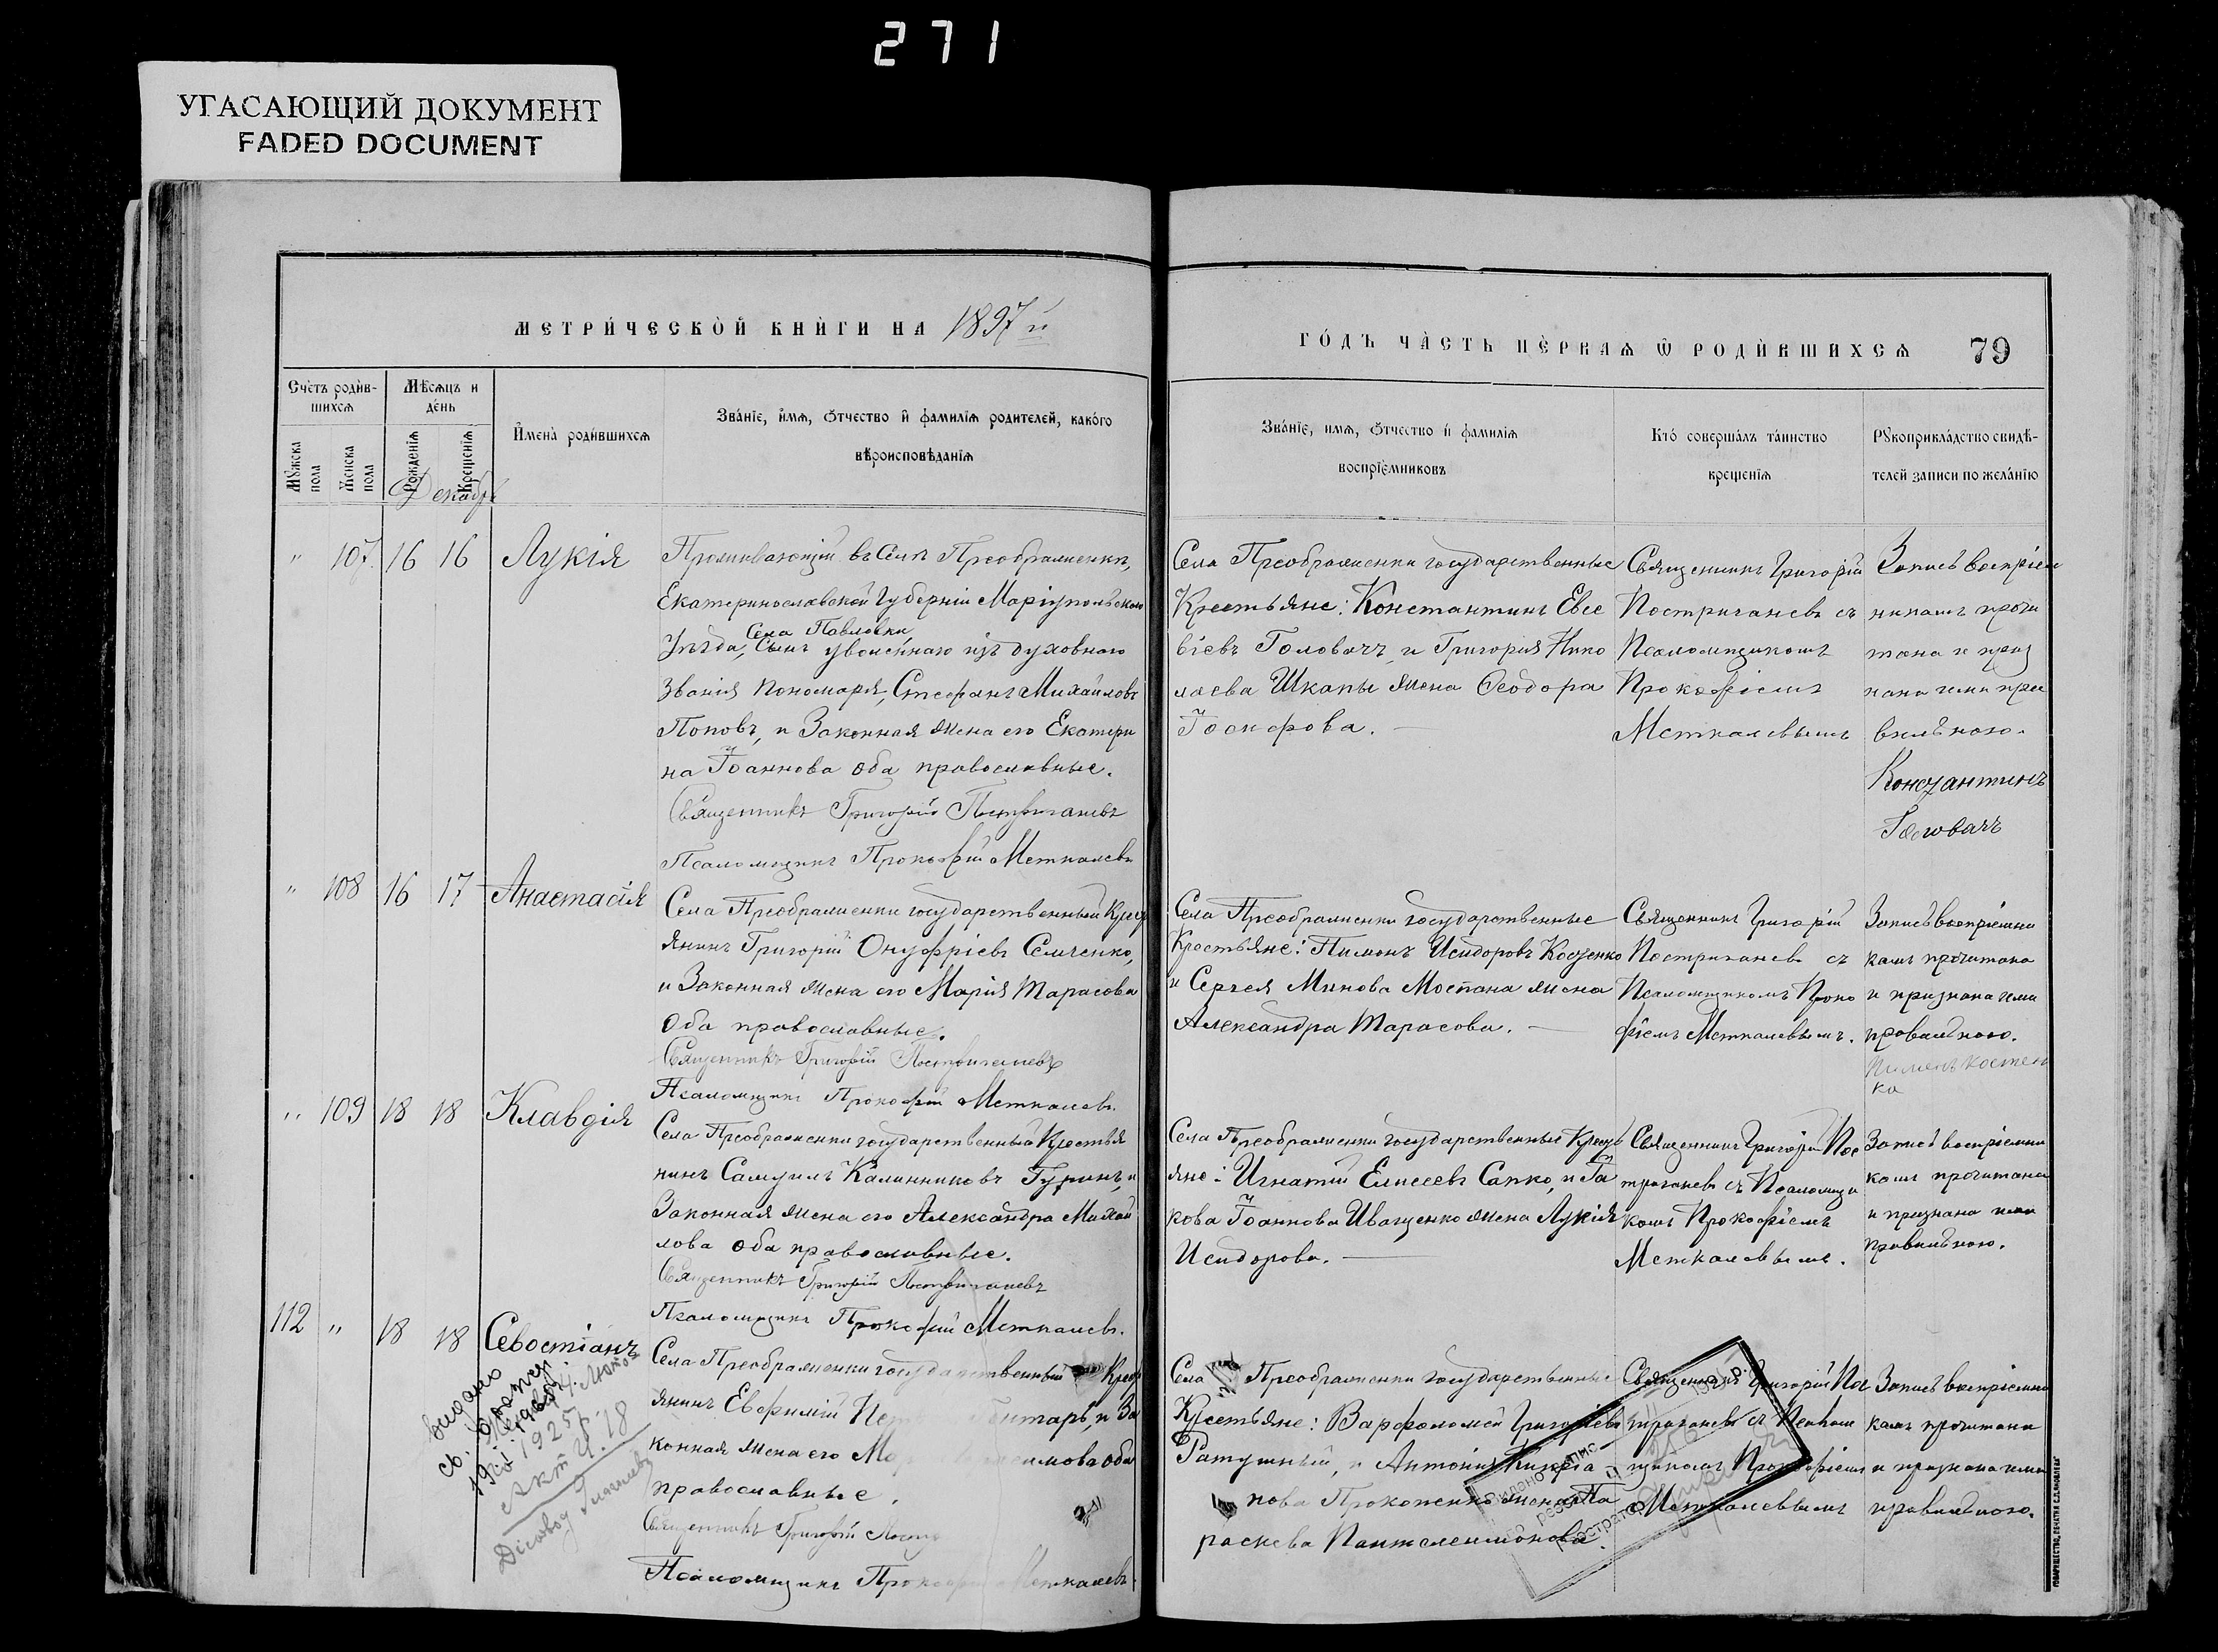 271
УГАСАЮЩИЙ ДОКУМЕНТ
FADED DOCUMENT
МЕТРИ́ЧЕСКОЙ КНИ́ГИ НА 1897 й
ГО́ДЪ ЧА́СТЬ ПЕ́РВАѦ Ѿ РОДИ́ВШИХСѦ 79
Сче́тъ роди́в-
шихсѧ
Мѣ́сѧцъ и
де́нь
Мꙋ́жска
пола
Же́нска
пола
Рожденїѧ
Крещенїѧ
Декабрь
И҆мена̀ роди́вшихсѧ
Зва́нїе, и҆́мѧ, ѻ҆́тчество и҆ фамилїѧ родителей, како́го
вѣроисповѣ́данїѧ
Зва́нїе, имѧ, ѻ҆́тчество и҆ фамилїѧ
воспрїе́мниковъ
Кто́ соверша́лъ та́инство
креще́нїѧ
Рꙋкоприкла́дство свидѣ́-
телей записи по жела́нїю
" 107. 16 16 Лукія
Проживающій въ Селѣ Преображенкѣ,
Екатеринославской Губерніи Маріупольскаго
Села Павловки
Уѣзда, Сынъ уволеннаго изъ духовнаго
Званія Пономаря, Стефанъ Михайловъ
Поповъ, и Законная жена его Екатери
на Іоаннова оба православные.
Священникъ Григорій Постриганевъ
Псаломщикъ Прокофій Меткалевъ
Села Преображенки государственные
Крестьяне: Константинъ Евсе
віевъ Головачъ, и Григорія Нико
лаева Шкапы жена Ѳеодора
Іосифова.
Священникъ Григорій
Постриганевъ съ
Псаломщикомъ
Прокофіемъ
Меткалевымъ
Запись воспріем
никамъ прочи
тана и приз
нана ими пра
вильною.
Констянтинъ
Головачъ
" 108 16 17 Анастасія
Села Преображенки государственный Крест
янинъ Григорій Онуфріевъ Семченко,
и Законная жена его Марія Тарасова
Оба православные.
Священникъ Григорій Постриганевъ
Псаломщикъ Прокофій Меткалевъ.
Села Преображенки государственные
Крестьяне: Пименъ Исидоровъ Костенко
и Сергея Минова Мостана жена
Александра Тарасова.
Священникъ Григорій
Постриганевъ съ
Псаломщикомъ Проко
фіемъ Меткалевымъ.
Запись воспріемни
камъ прочитана
и признана ими
правильною.
Пименъ Костен
ка
" 109 18 18 Клавдія
Села Преображенки государственный Крестья
нинъ Самуилъ Калинниковъ Гуринъ, и
Законная жена его Александра Михай
лова оба православные.
Священникъ Григорій Постриганевъ
Псаломщикъ Прокофій Меткалевъ.
Села Преображенки государственные Крест
яне: Игнатій Елисеевъ Сапко, и Іа
кова Іоаннова Иващенко жена Лукія
Исидорова.
Священникъ Григорій Пос
триганевъ съ Псаломщи
комъ Прокофіемъ
Меткалевымъ.
Запись воспріемни
камъ прочитана
и признана ими
правильною.
112 " 18 18 Севостіанъ
Села Преображенки государственный Крест
янинъ Евфимій и За
конная жена его оба
православные.
Священникъ Григорій
Псаломщикъ Прокофій Меткалевъ.
Села Преображенки государственные
Крестьяне: Варфоломей Григорьевъ
Ратушный, и Антонія
нова Прокопенко жена Па
раскева Пантелеимонова.
Священникъ Григорій Пос
триганевъ съ Псалом
щикомъ Прокофіемъ
Меткалевымъ
Запись воспріемни
камъ прочитана
и признана ими
правильною.
видано
1925 р.
Акт Ч. 18
Діловод